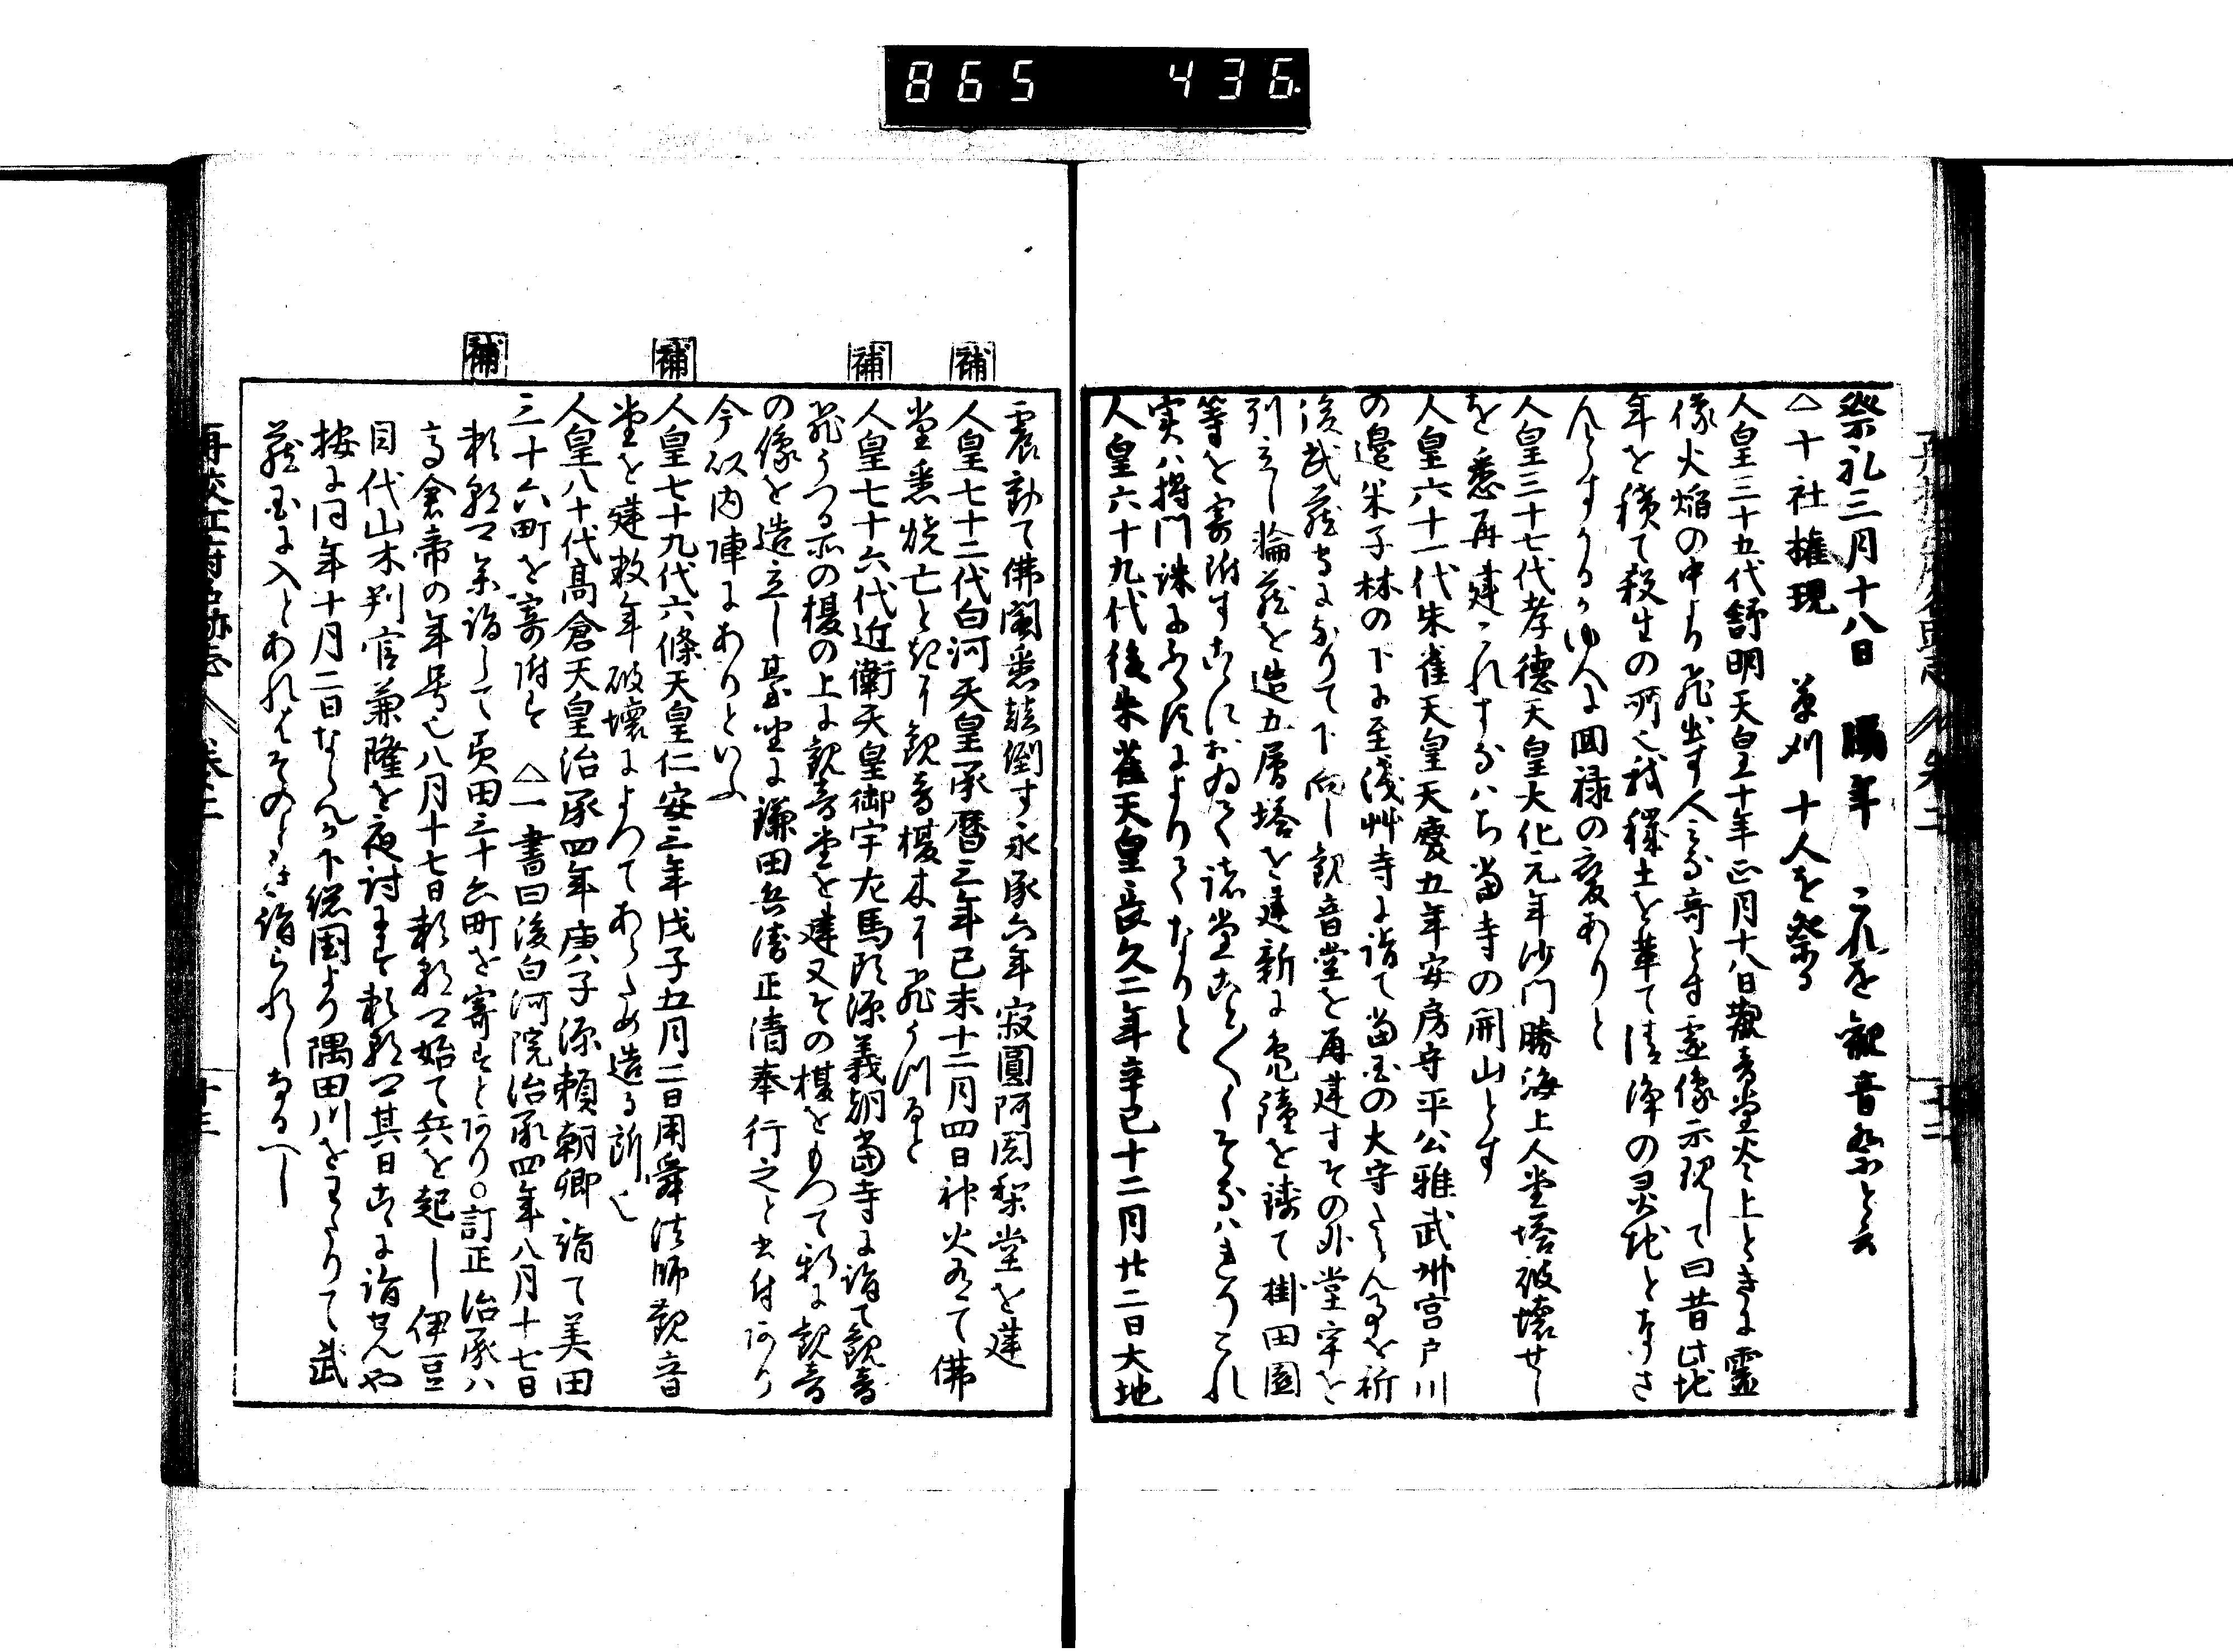 865 436
祭礼三月十八日 隔年 これを観音祭と云
△十社権現 草刈十人を祭る
人皇三十五代舒明天皇十年正月十八日観音堂炎上ときに霊
像火焔の中より飛出す人みな奇とす霊像示現して曰昔此地
年を積て殺生の所也我穢土を華て清浄の灵地となさ
んとすかるかゆへに回禄の変ありと
人皇三十七代孝徳天皇大化元年沙門勝海上人堂塔破壊せし
を悉再建これすなハち當寺の開山とす
人皇六十一代朱雀天皇天慶五年安房守平公雅武州宮戸川
の邉米子林の下に至浅艸寺に詣て當国の大守たらん事を祈
後武蔵守になりて下向し観音堂を再建すその外堂宇を
列立し輪蔵を造五層塔を建新に鬼鐘を鋳て掛田園
等を寄附すこゝにおゐて諸堂こと〴〵くそなハれりこれ
実ハ将門誅
人皇六十九代後朱雀天皇長久二年辛巳十二月廿二日大地
震動て佛閣悉顛倒す永承六年寂圓阿闍梨堂を建
補
人皇七十二代白河天皇承暦三年己未十二月四日神火有て佛
堂悉焼亡と
補
人皇七十六代近衛天皇御宇左馬頭源義朝當寺に詣て観音
飛うつる所の榎の上に観音堂を建又その榎をもつて新に観音
の像を造立し臺坐に鎌田兵衛正清奉行之と書付あり
今以内陣にありといふ
補
人皇七十九代六條天皇仁安三年戊子五月二日用舜法師観音
堂を建数年破壊によつてあらため造る所也
人皇八十代高倉天皇治承四年庚子源頼朝卿詣て美田
三十六町を寄附す △一書曰後白河院治承四年八月十七日
補
頼朝公参詣して美田三十六町を寄すとあり○訂正治承ハ
高倉帝の年号也八月十七日頼朝公始て兵を起し伊豆
目代山木判官兼隆を夜討にす頼朝公其日こゝに詣せんや
按に同年十月二日ならんか下総国より隅田川をわたりて武
蔵国に入とあれはそのとき詣られしなるへし
再校江戸名跡志 巻二 十三